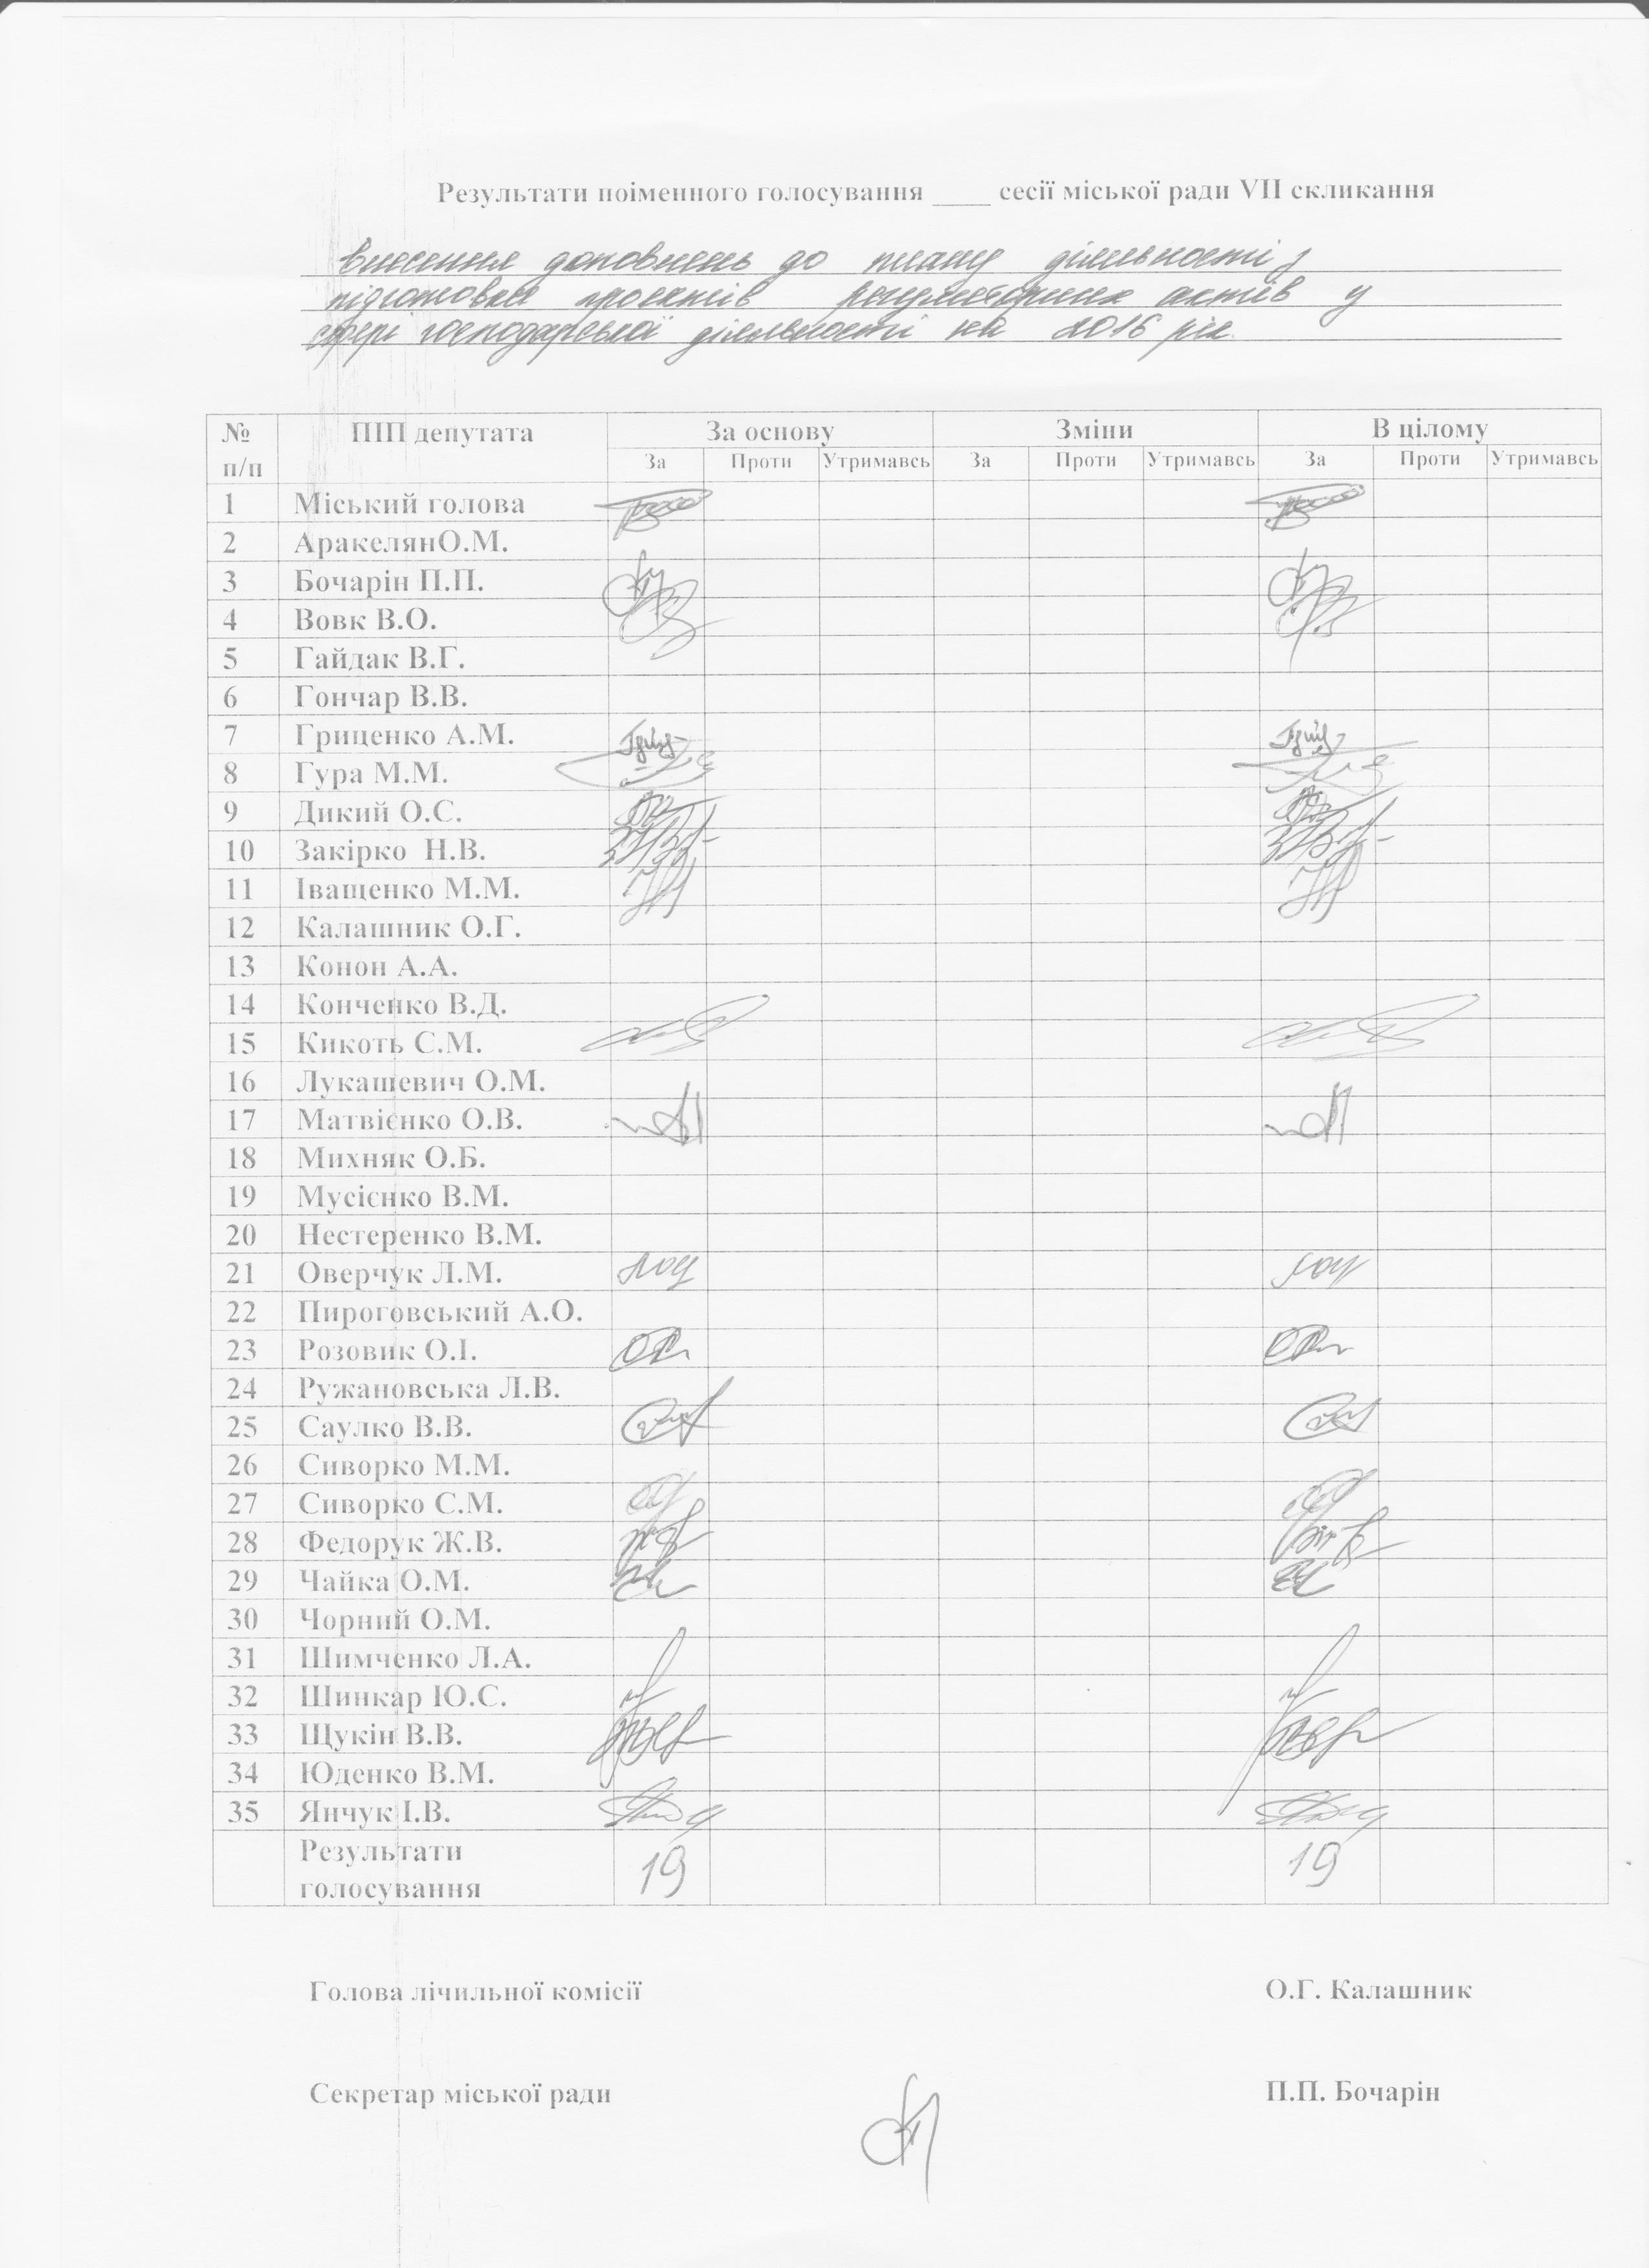 Результати поіменного голосування ____ сесії міської ради VII скликання
внесення доповнень до плану діяльності з
підготовки проектів регуляторних актів у
сфері господарської діяльності на 2016 рік.
№ п/п ПІП депутата За основу Зміни В цілому
За Проти Утримавсь За Проти Утримавсь За Проти Утримавсь
1 Міський голова
2 АракелянО.М.
3 Бочарін П.П.
4 Вовк В.О.
5 Гайдак В.Г.
6 Гончар В.В.
7 Гриценко А.М.
8 Гура М.М.
9 Дикий О.С.
10 Закірко Н.В.
11 Іващенко М.М.
12 Калашник О.Г.
13 Конон А.А.
14 Конченко В.Д.
15 Кикоть С.М.
16 Лукашевич О.М.
17 Матвієнко О.В.
18 Михняк О.Б.
19 Мусієнко В.М.
20 Нестеренко В.М.
21 Оверчук Л.М.
22 Пироговський А.О.
23 Розовик О.І.
24 Ружановська Л.В.
25 Саулко В.В.
26 Сиворко М.М.
27 Сиворко С.М.
28 Федорук Ж.В.
29 Чайка О.М.
30 Чорний О.М.
31 Шимченко Л.А.
32 Шинкар Ю.С.
33 Щукін В.В.
34 Юденко В.М.
35 Янчук І.В.
Результати
голосування 19 19
Голова лічильної комісії О.Г. Калашник
Секретар міської ради П.П. Бочарін